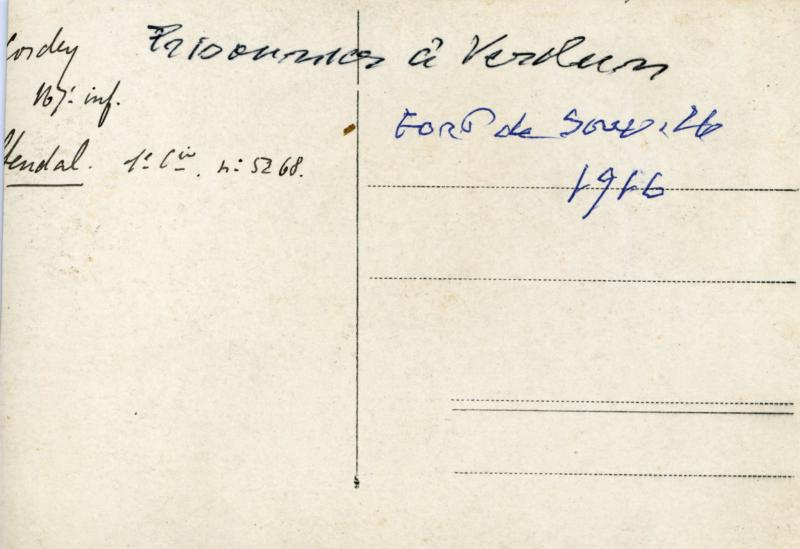 Cordey
167e inf.
Stendal. 1e Cie. no 5268.
Prisonnier à Verdun
Fort de Souville
1916